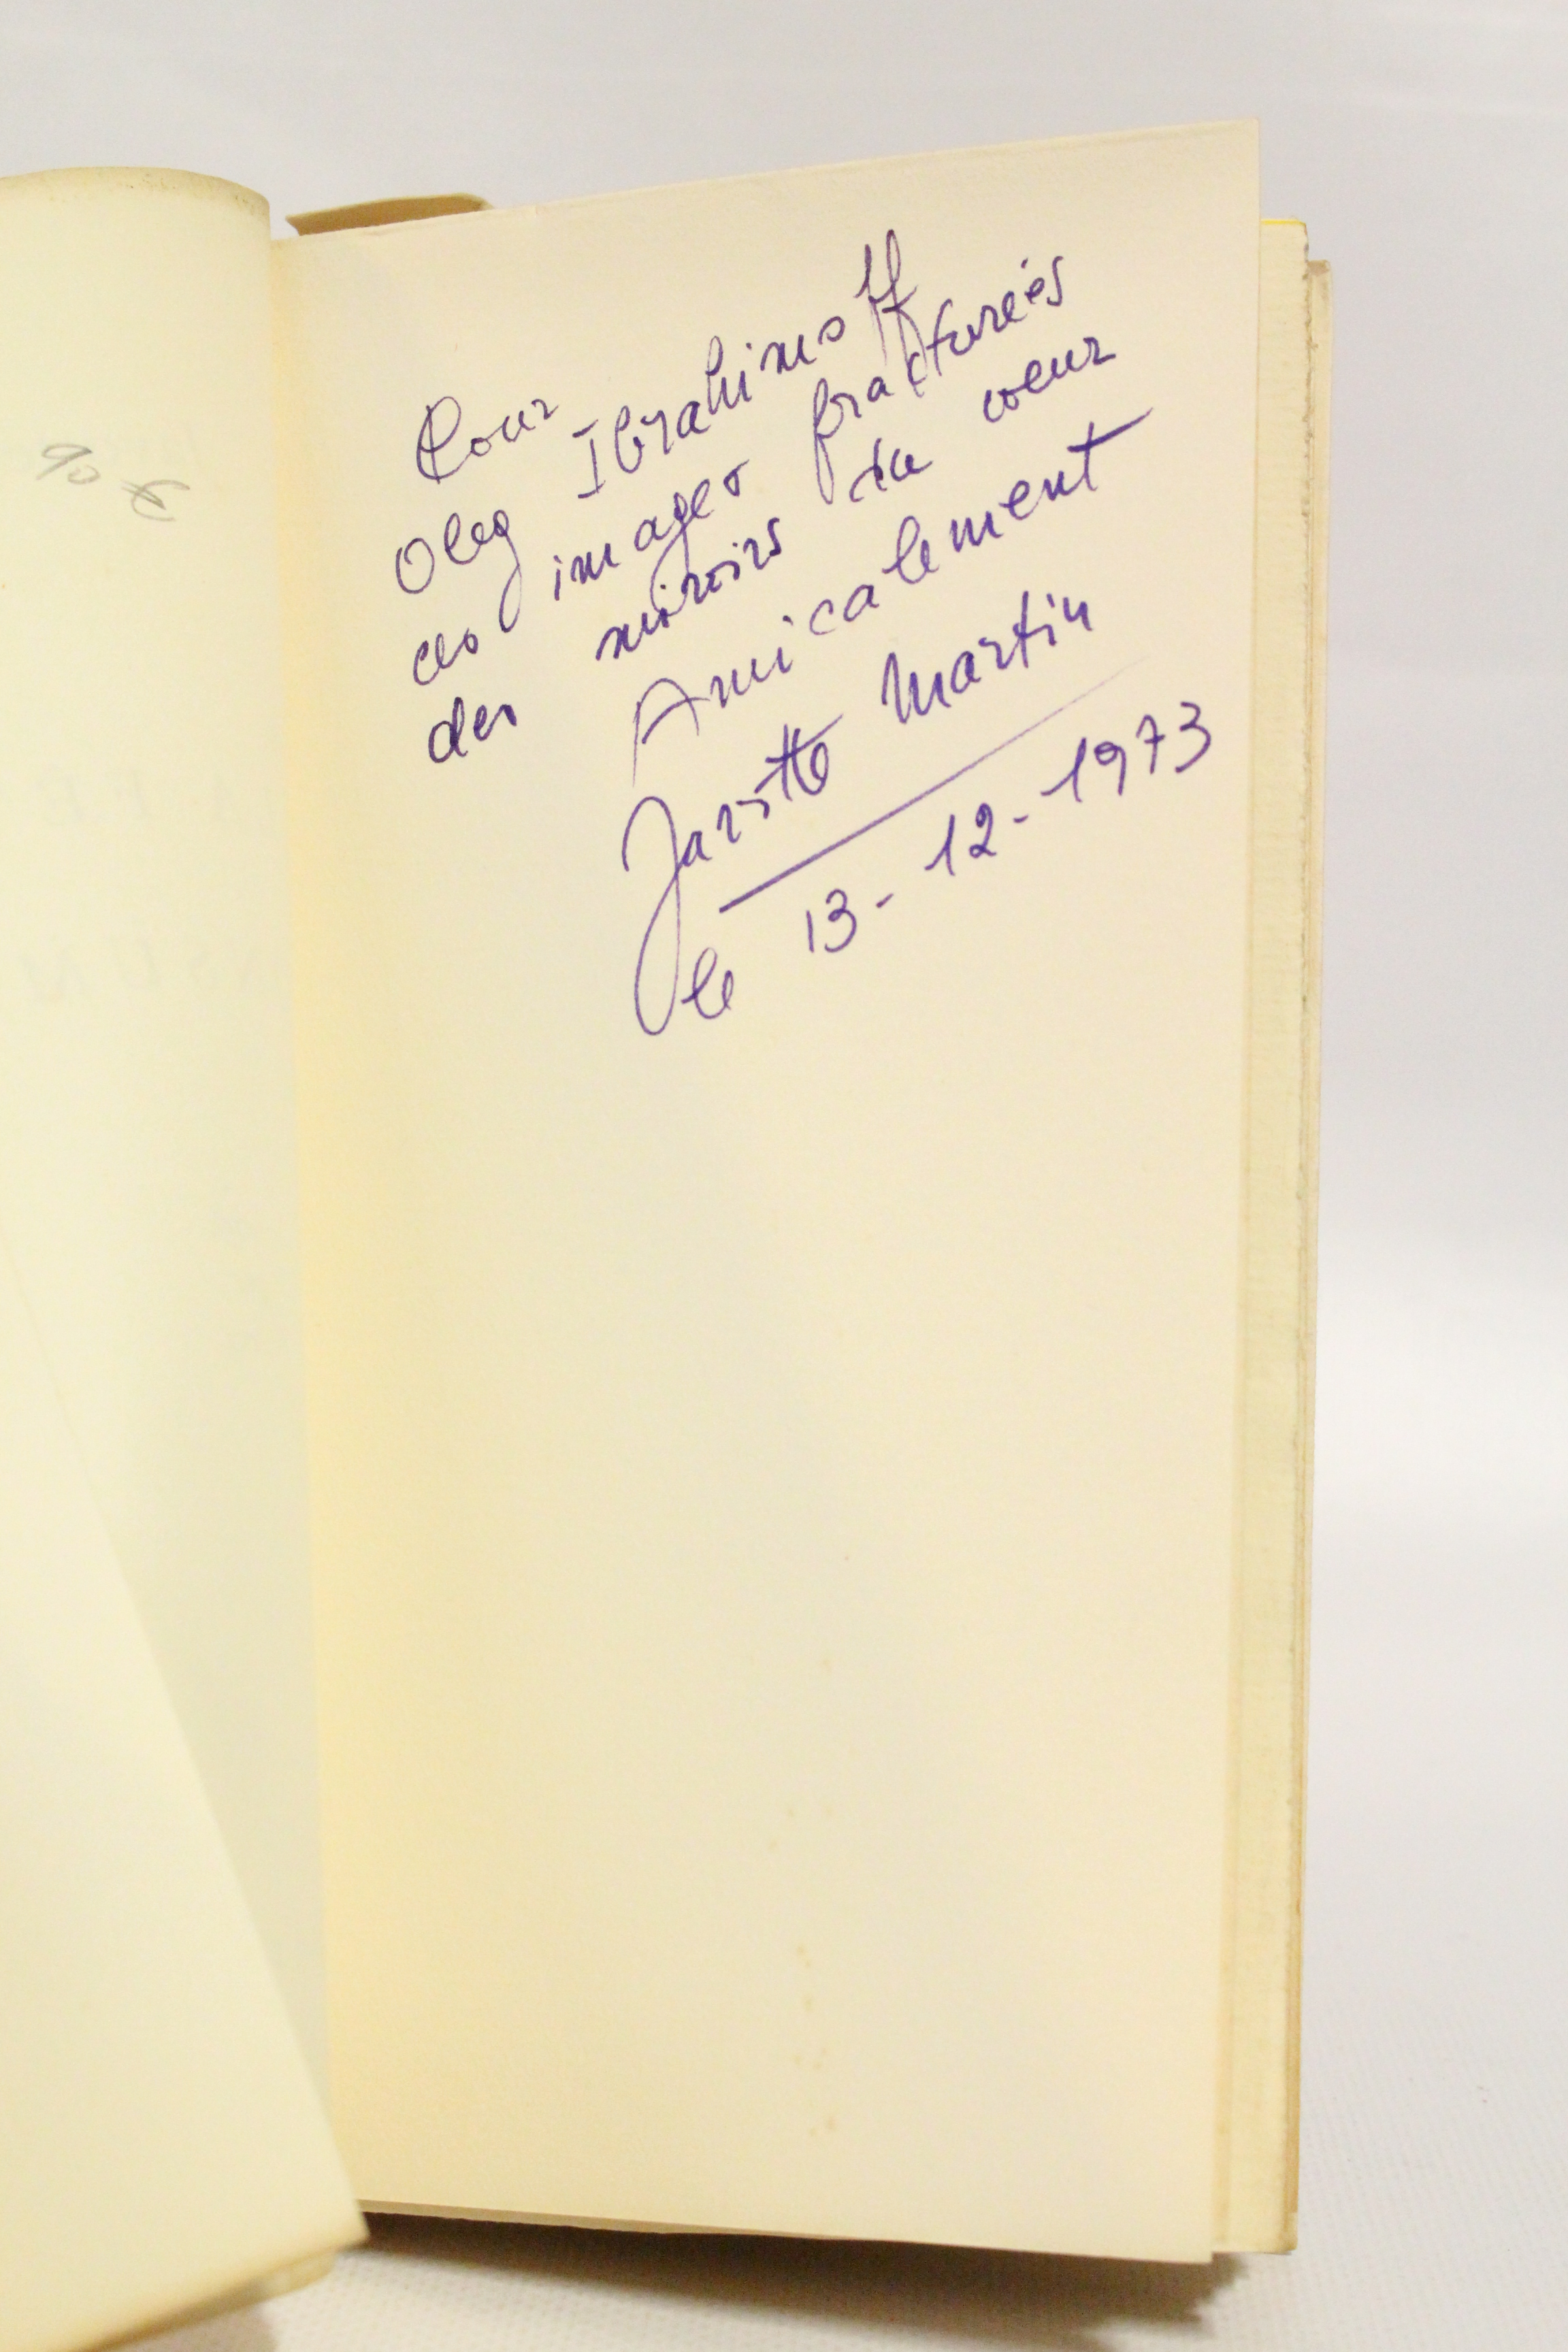 Pour
Oleg Ibrahimoff
ces images fracturées
des miroirs du coeur
Amicalement
Jaritte Martin
le 13-12-1973